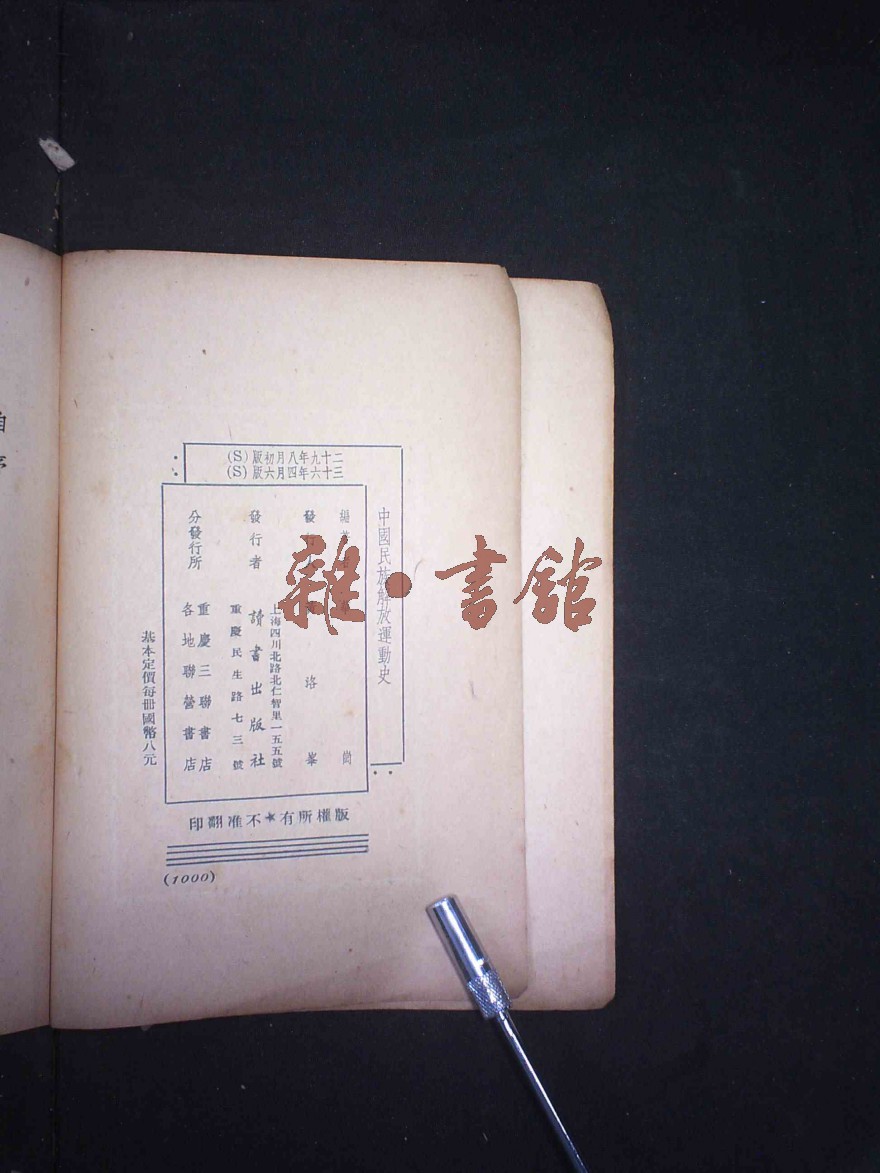 二十九年八月初版(S)
三十六年四月六版(S)
中國民族解放運動史
編著者 尚
發行人 黃洛峯
發行者 讀書出版社
上海四川北路北仁智里一五五號
重慶民生路七三號
分發行所
重慶三聯書店
各地聯營書店
基本定價每冊國幣八元
版權所有★不准翻印
(1000)
雜·書館
自序